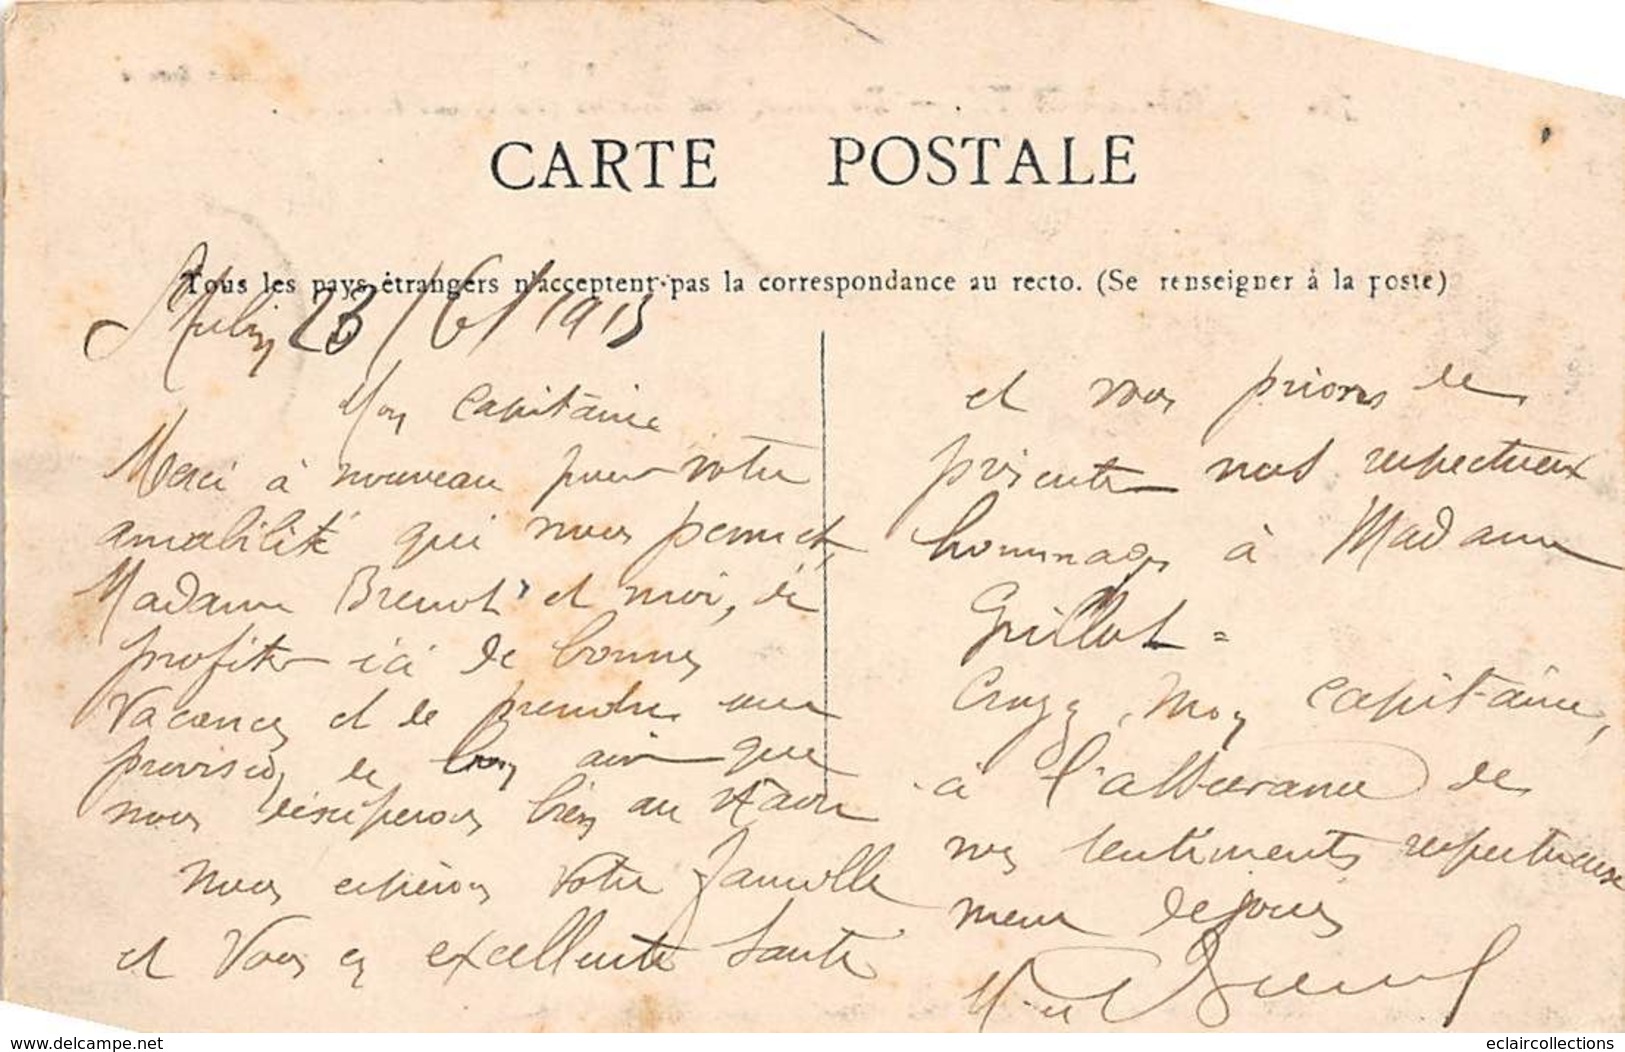 CARTE POSTALE
Tous les pays étrangers n'acceptent pas la correspondance au recto. (Se renseigner à la poste)
1913
Mon Capitaine
Merci à nouveau pour votre
amabilité qui nous permet,
Madame Brenot et moi, de
profiter ici de bonnes
Vacances et de prendre une
provision de bon air que
nous bien au
Nous espérons votre famille
et Vous en excellente Santé
et vous prions de
présenter nos respectueux
hommages à Madame
Grillot =
Croyez, Mon Capitaine,
à l'assurance de
nos sentiments respectueuse
ment dévoués
Brenot
eclaircollections
www.delcampe.net